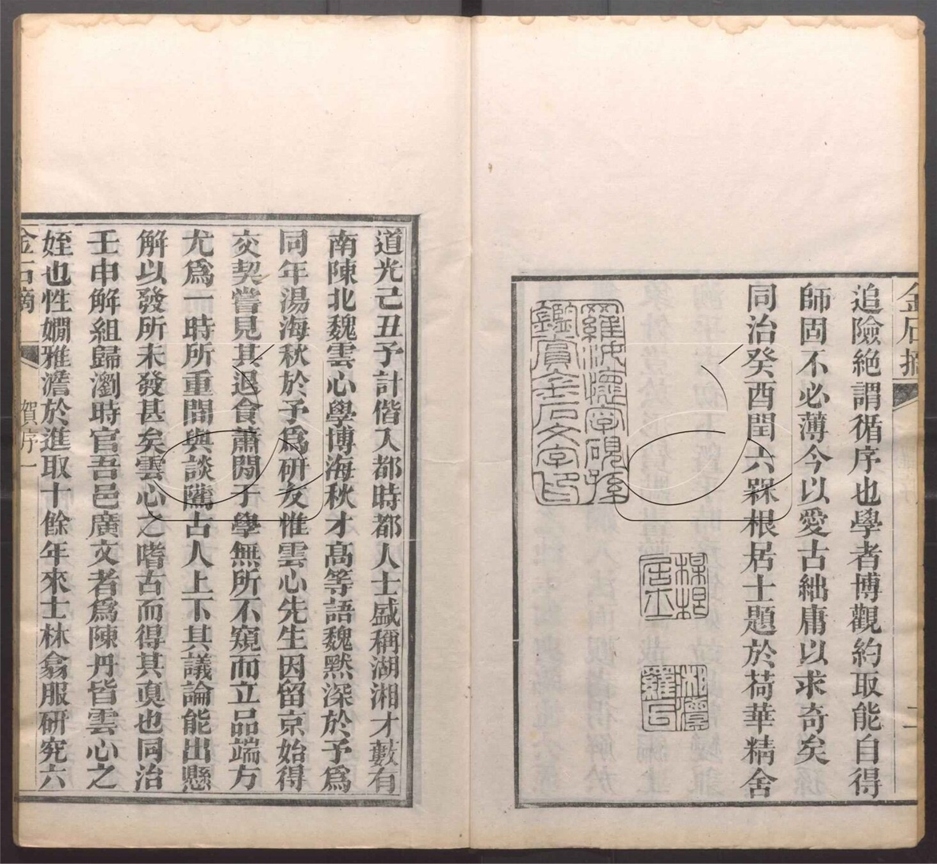 金石摘
二
追險絶謂循序也學者博觀約取能自得
師固不必薄今以愛古絀庸以求奇矣
同治癸酉閏六槑根居士題於荷華精舍
鑑賞金石文字印
槑根居士
湘潭羅氏
道光己丑予計偕入都時都人士盛稱湖湘才藪有
南陳北魏雲心學博海秋才高等語魏默深於予爲
同年湯海秋於予爲研友惟雲心先生因留京始得
交契嘗見其退食蕭閒于學無所不窺而立品端方
尤爲一時所重間與談隲古人上下其議論能出懸
解以發所未發甚矣雲心之嗜古而得其眞也同治
壬申解組歸瀏時官吾邑廣文者爲陳丹皆雲心之
姪也性嫺雅澹於進取十餘年來士林翕服研究六
金石摘
賀序一